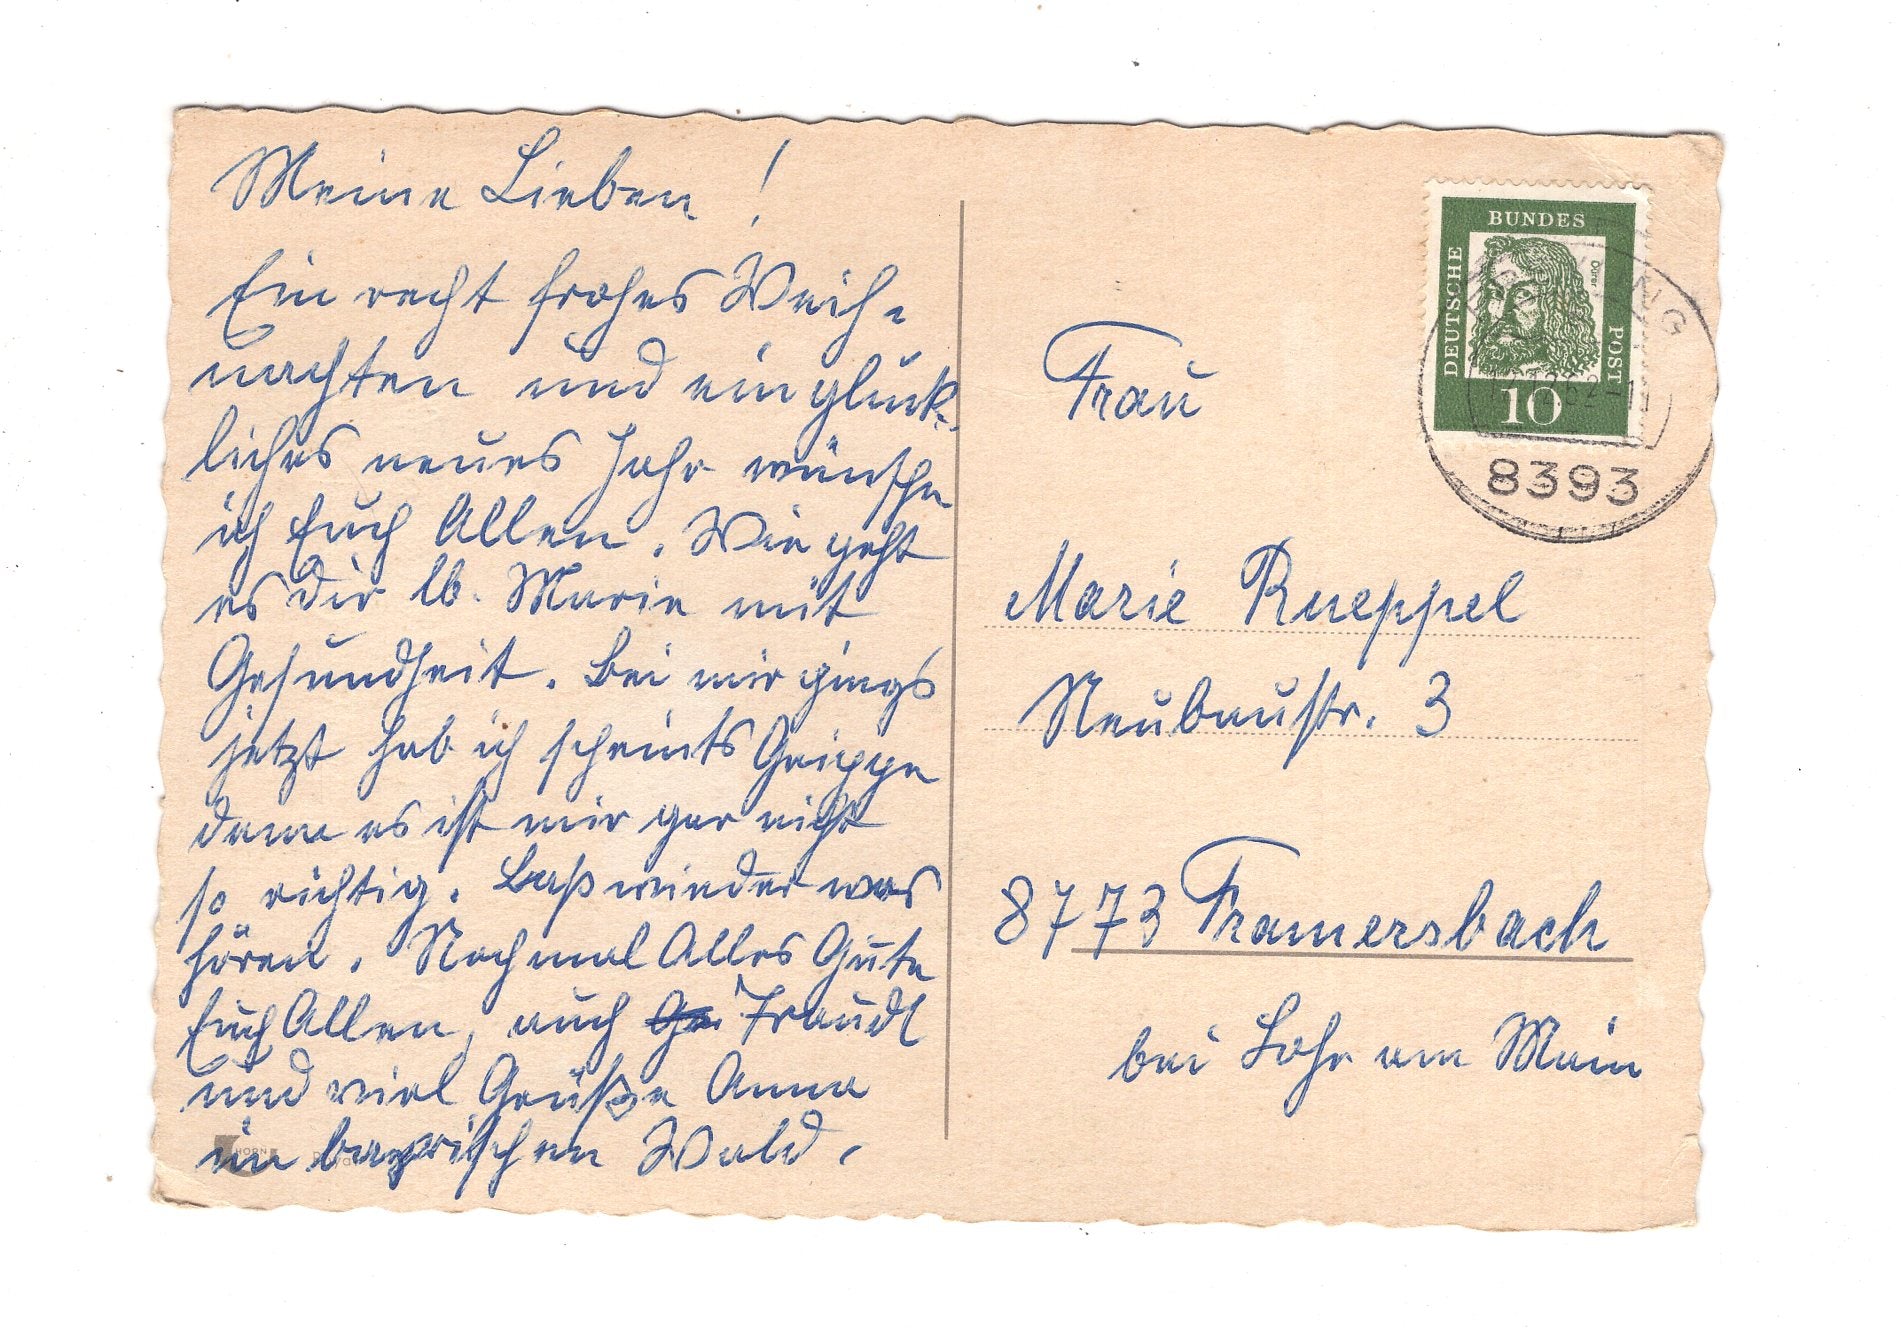 Meine Lieben!
Ein recht frohes Weih-
nachten und ein glück-
liches neues Jahr wünsche
ich Euch Allen. Wie geht
es dir lb. Marie mit
Gesundheit. Bei mir gings
jetzt hab ich scheints Grippe
denn es ist mir gar nicht
so richtig. Laß wieder was
hören. Nochmal Alles Gute
Euch Allen, auch Traudl
und viel Grüße Anna
im bayrischen Wald.
HORN
DEUTSCHE BUNDES POST
Dürer
10
8393
Frau
Marie Rueppel
Neubaustr. 3
8773 Framersbach
bei Lohr am Main